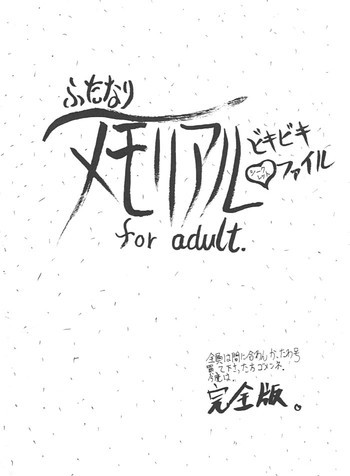 ふたなり
メモリアル
ビキビキ
シークレット
ファイル
for adult.
全員は間に合わんかったわ号
買って下さった方ゴメンネ。
今度は…
完全版。